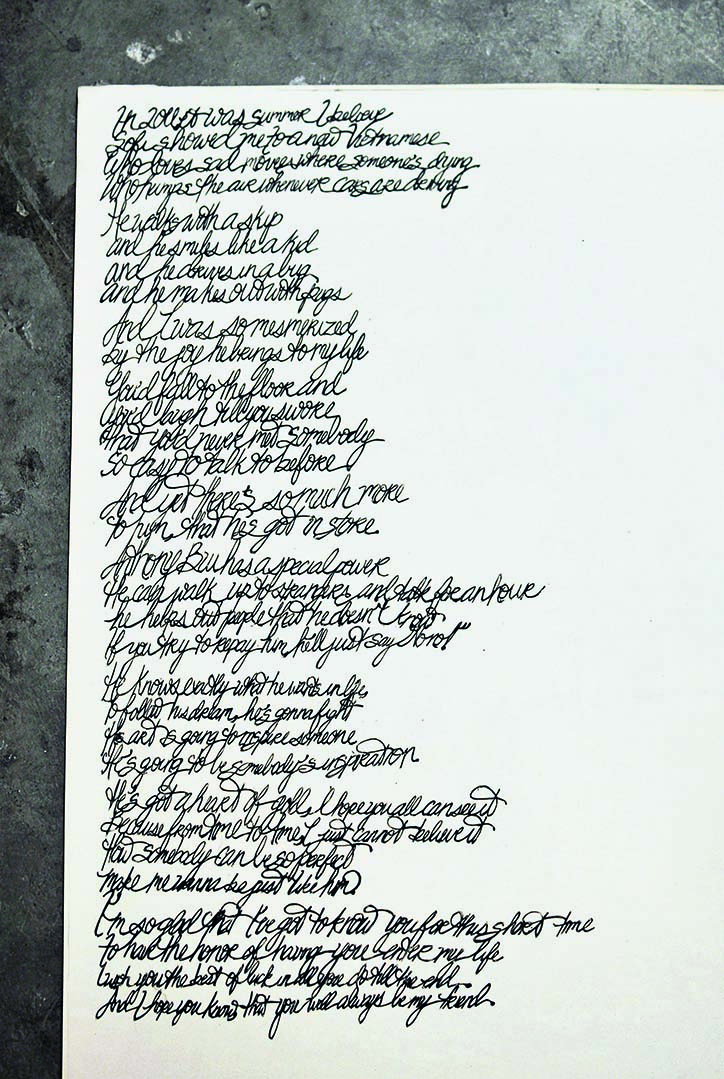 In 2011 it was summer I believe
Sofu showed me to a new Vietnamese
Who loves sad movies where someone's dying
Who humps the air whenever cars are driving
He walks with a skip
and he smiles like a kid
and he drives in a bug
and he makes out with pugs
And I was so mesmerized
by the joy he brings to my life
You'd fall to the floor and
you'd laugh till you swore
that you'd never met somebody
so easy to talk to before
And yet there's so much more
to him that he's got in store
Anthony Bui has a special power
He can walk up to strangers and talk for an hour
he helps out people that he doesn't
If you try to repay him, he'll just say
He knows exactly what he wants in life
To follow his dream, he's gonna fight
His art is going to inspire someone
He's going to be somebody's inspiration
He's got a heart of gold, I hope you all can see it
Because from time to time, I just cannot believe it
How somebody can be so perfect
make me wanna be just like him
I'm so glad that I've got to know you for this short time
To have the honor of having you enter my life
I wish you the best of luck in all you do till the end
And I hope you know that you will always be my friend